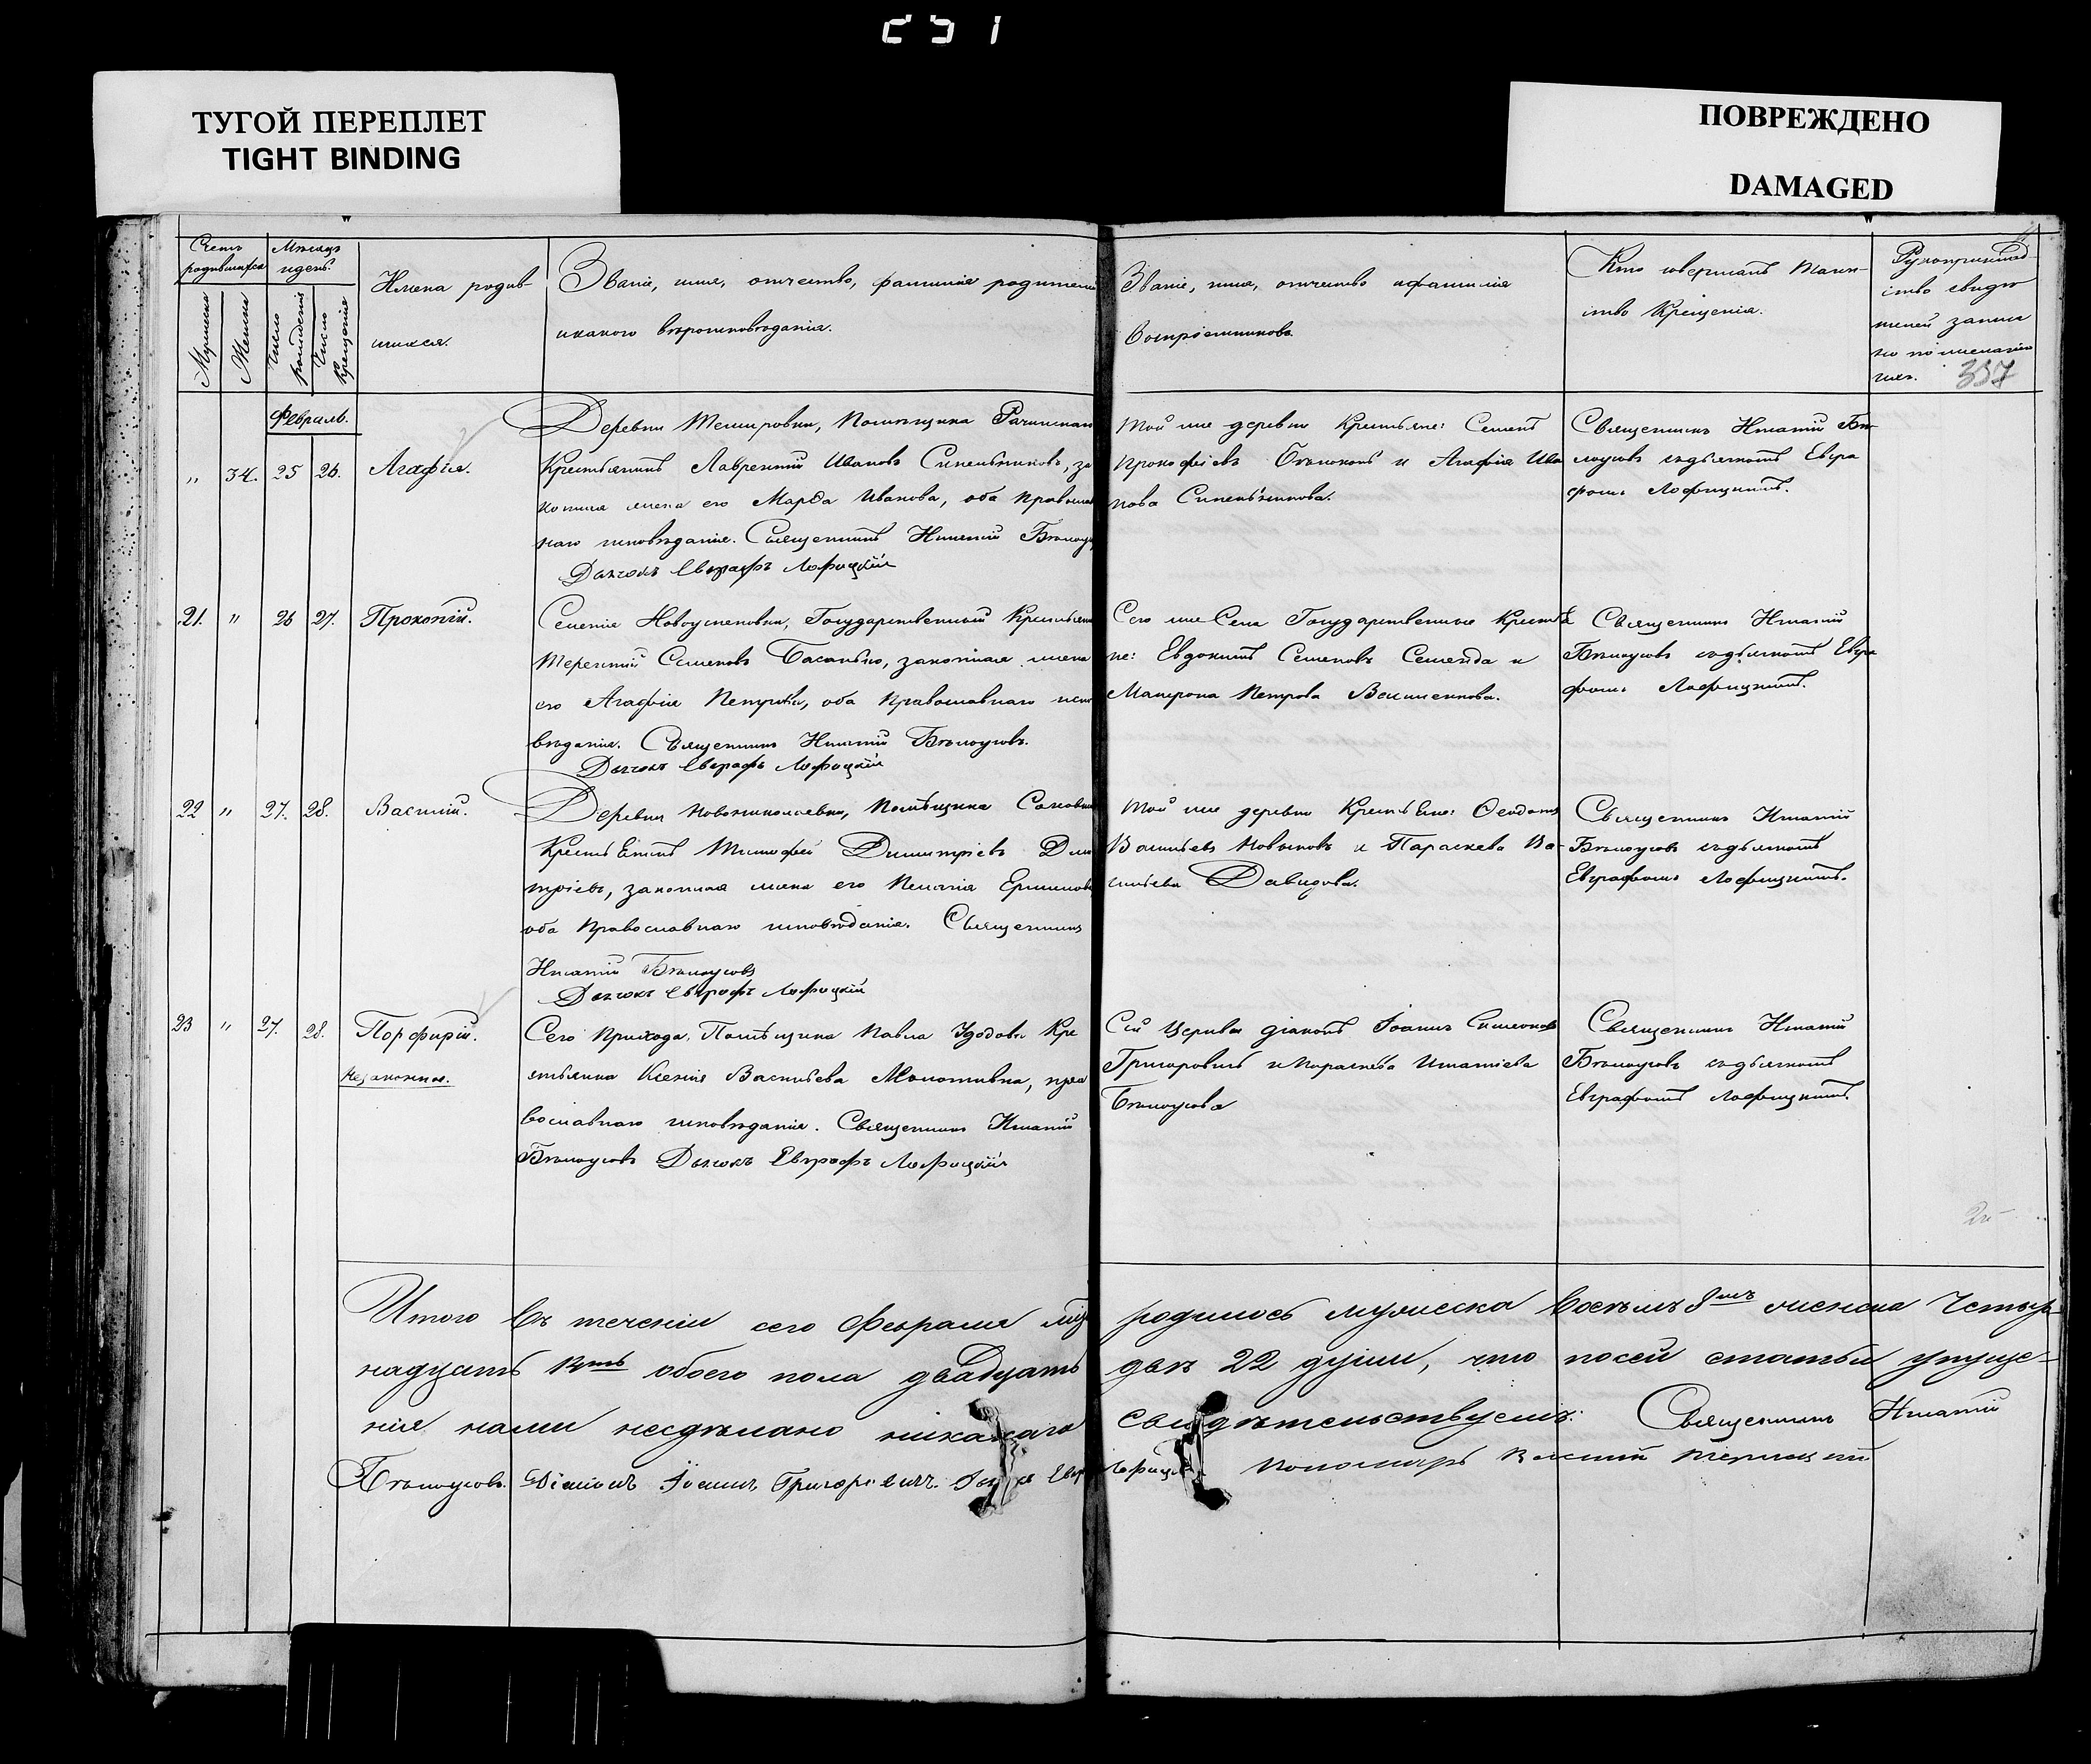 251
ТУГОЙ ПЕРЕПЛЕТ
TIGHT BINDING
ПОВРЕЖДЕНО
DAMAGED
Счетъ родившихся
Мужеска
Женска
Мѣсяцъ и день.
Число рожденія
Число крещенія
Имена родив-
шихся.
Званіе, имя, отчество, фамилія родителей
и какого вѣроисповѣданія.
Званіе, имя, отчество и фамилія
Воспріемниковъ
Кто совершалъ таин-
ство Крещенія.
Рукоприклад-
ство свидѣ
телей записи
по
337
Февраль.
" 34. 25 26. Агафія.
Деревни Темировки, Помѣщика
Крестьянинъ Лаврентій Ивановъ Синельниковъ, за
конная жена его Марѳа Иванова, оба Православ
наго исповѣданія. Священникъ Игнатій Бѣлоус
Дьячокъ Евграфъ Лофицкій
Той же деревни Крестьяне: Семенъ
Прокофіевъ и Агафія Ива
нова Синельникова.
Священникъ Игнатій Бѣ-
лоусовъ съ дьячкомъ Евгра
фомъ Лофицкимъ.
21. " 26 27. Прокопій.
Селенія Новоуспеновки, Государственный Крестьяни
Терентій Семеновъ Басанько, законная жена
его Агафія Петрова, оба Православнаго испо
вѣданія. Священникъ Игнатій Бѣлоусовъ.
Дьячокъ Евграфъ Лофицкій
Сего же Села Государственные Крестья
не: Евдокимъ Семеновъ и
Матрона Петрова
Священникъ Игнатій
Бѣлоусовъ съ дьячкомъ Евгра
фомъ Лофицкимъ.
22 " 27. 28. Василій.
Деревни Новониколаевки, Помѣщика
Крестьянинъ Тимофей Димитріевъ Дми
тріевъ, законная жена его Пелагія
оба Православнаго исповѣданія. Священникъ
Игнатій Бѣлоусовъ
Дьячокъ Евграфъ Лофицкій
Той же деревни Крестьяне: Ѳеодотъ
Васильевъ Новиковъ и Параскева Ва-
сильева Давидова.
Священникъ Игнатій
Бѣлоусовъ съ дьячкомъ
Евграфомъ Лофицкимъ.
23 " 27. 28. Порфирій.
Незаконная.
Сего Прихода, Помѣщика Павла Удодова Кре
стьянка Ксенія Васильева пра
вославнаго исповѣданія. Священникъ Игнатій
Бѣлоусовъ Дьячокъ Евграфъ Лофицкій
Сей Церкви діаконъ Іоаннъ Симеоновъ
Григоровичъ и Параскева Игнатіева
Бѣлоусова
Священникъ Игнатій
Бѣлоусовъ съ дьячкомъ
Евграфомъ Лофицкимъ.
Итого въ теченіи сего Февраля мца родилось мужеска восемъ 8мъ женска Четыр
надцать обоего пола двадцать два 22 души, что посей статьи упуще-
нія нами несдѣлано никакаго свидѣтельствуемъ: Священникъ Игнатій
Бѣлоусовъ. Діаконъ Іоаннъ Григоровичъ. Пономарь Василій